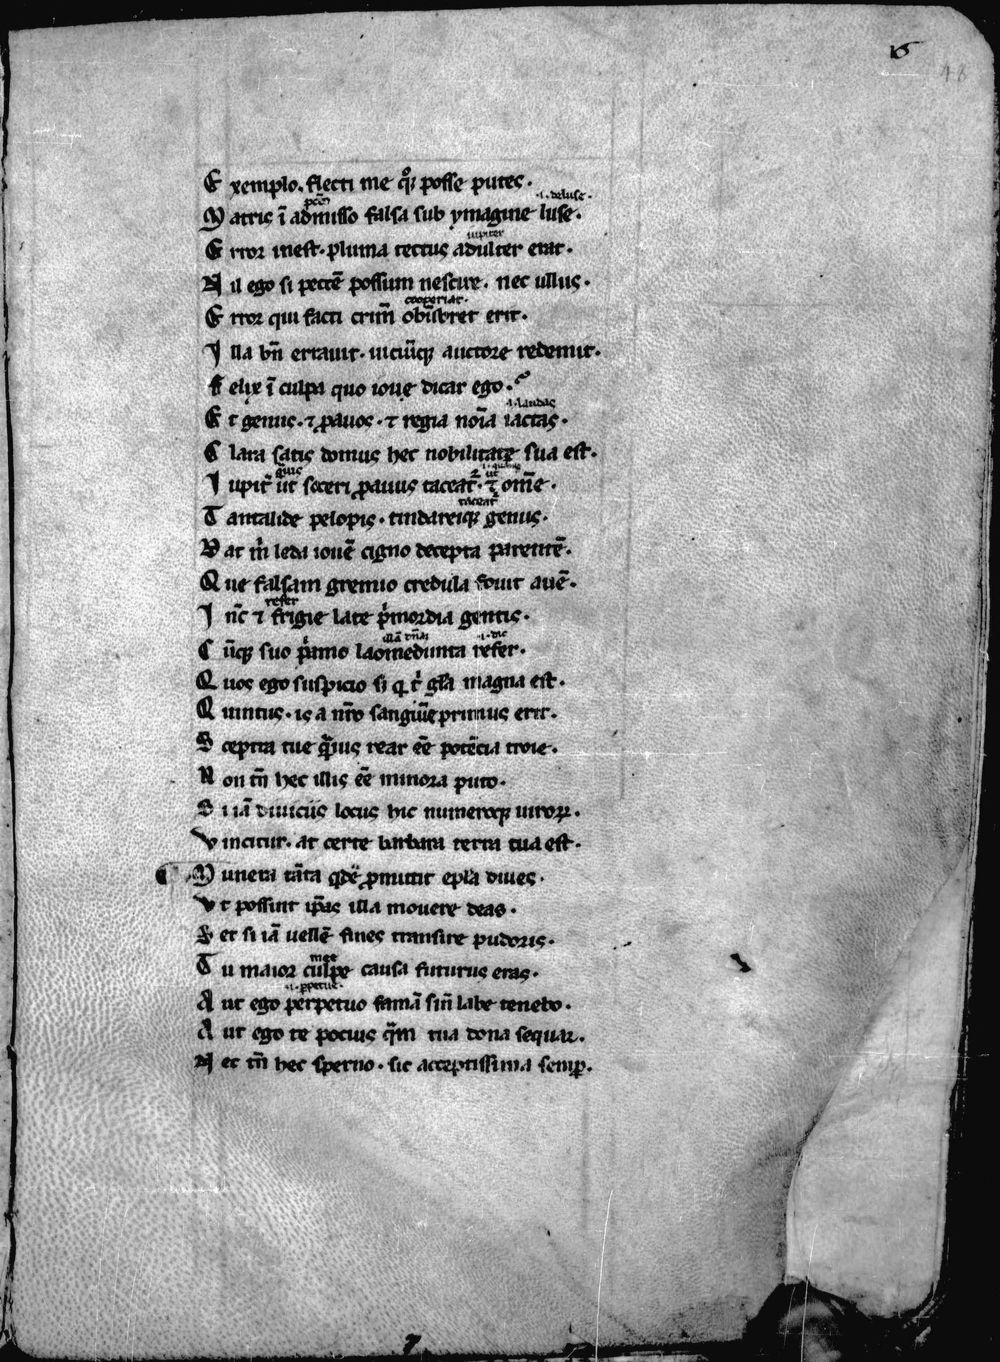 16
18
Exemplo. flecti me q̊ꝫ posse putes.
.i. deluse.
Matris ī admisso falsa sub ymagine luse.
iupiter
Error inest. pluma tectus adulter erat.
Nil ego si peccē possum nescire. nec ullus.
cooperiat.
Error qui facti crim̄ obūbret erit.
Illa bn̄ errauit. uiciūqꝫ auctore redemit.
Felix ī culpa quo ioue dicar ego.
.i. laudas
Et genus. ⁊ ꝓauos. ⁊ regia noīa iactas.
Clara satis domus hec nobilitate sua est.
Iupit̄ ut soceri ꝓauus taceat᷑. ⁊ om̄e.
taceat᷑
Tantalide pelopis. tindareiqꝫ genus.
Dat m̄ leda iouē cigno decepta parentē.
Que falsam gremio credula fouit auē.
refer
I nc̄ ⁊ frigie late p̄mordia gentis.
.i. dic
Cūqꝫ suo p̄amo laomedunta refer.
Quos ego suspicio sꝫ q t᷑ gl̄a magna est.
Quintus. is a nr̄o sanguīe primus erit.
Sceptra tue q̄uis rear ēe potēcia troie.
Non tn̄ hec illis ēe minora puto.
Si iā diuiciis locus hic numeroqꝫ uiroꝝ.
Vincitur. at certe barbara terra tua est.
Munera tāta qdē ꝓmittit epl̄a diues.
Vt possint ip̄as illa mouere deas.
Set si iā uellē fines transire pudoris.
mee
Tu maior culpe causa futurus eras.
Aut ego perpetuo famā sin̄ labe tenebo.
Aut ego te pocius q̄m tua dona sequar.
Nec tn̄ hec sperno. sic acceptissima semꝑ.